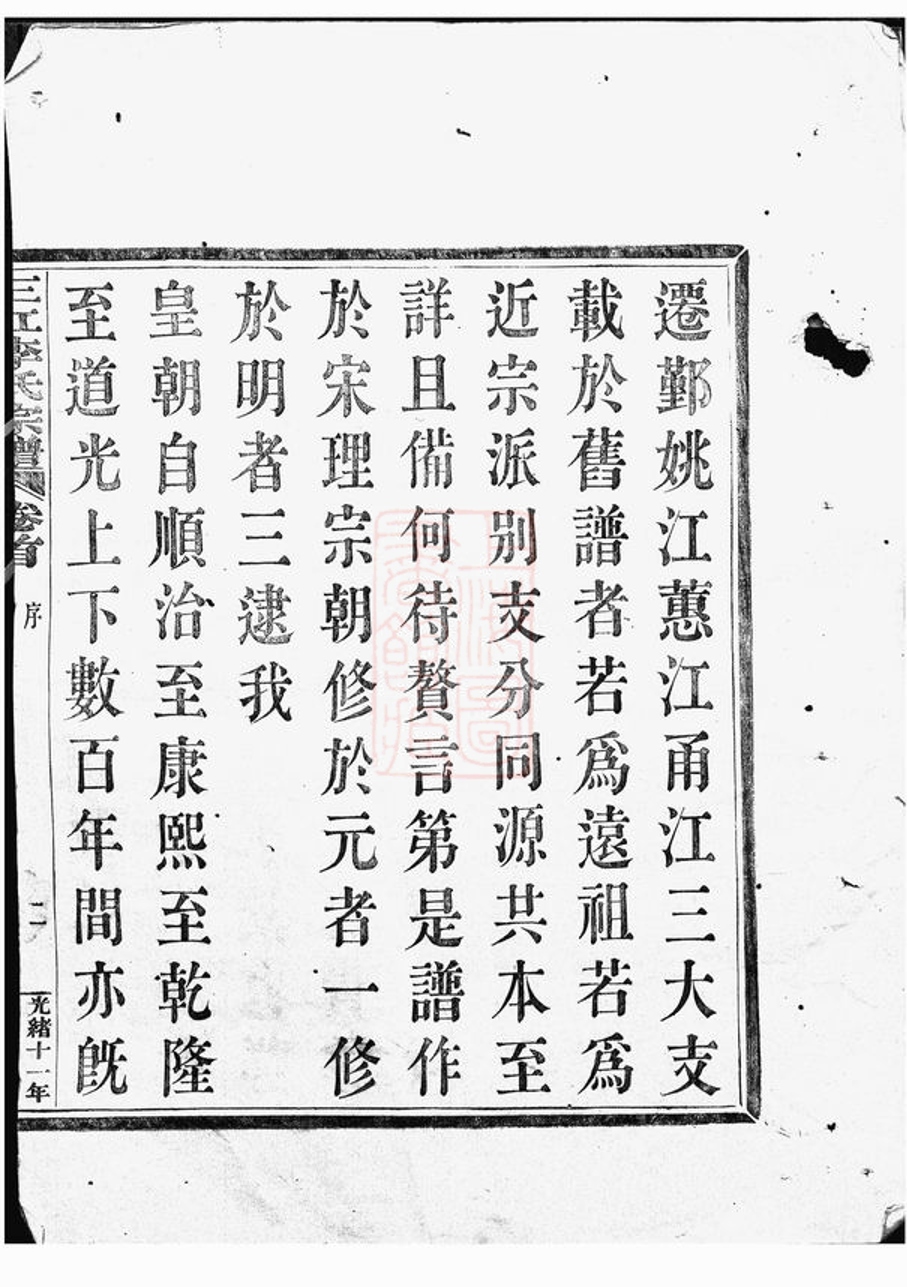 遷鄞姚江蕙江甬江三大支
載於舊譜者若爲遠祖若爲
近宗派別支分同源共本至
詳且備何待贅言第是譜作
於宋理宗朝修於元者一修
於明者三逮我
皇朝自順治至康熙至乾隆
至道光上下數百年間亦旣
三江李氏宗譜 卷首 序 二 光緒十一年